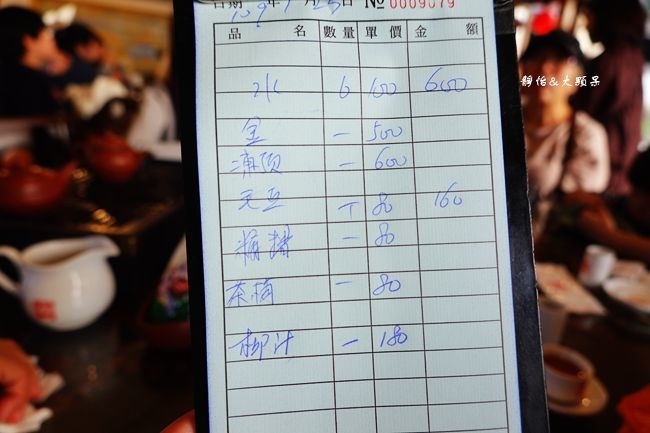 日期 109年 月25日 No 0009079
品名 數量 單價 金額
水 6 100 600
金 一 500
凍頂 一 600
毛豆 T 80 160
一 80
茶梅 一 80
柳汁 一 180
靜怡&大顆呆